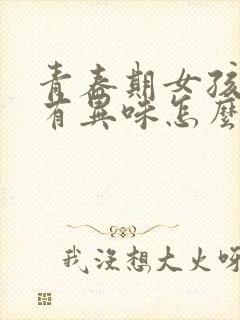 青春期女孩
有異味怎麼
我沒想大火呀